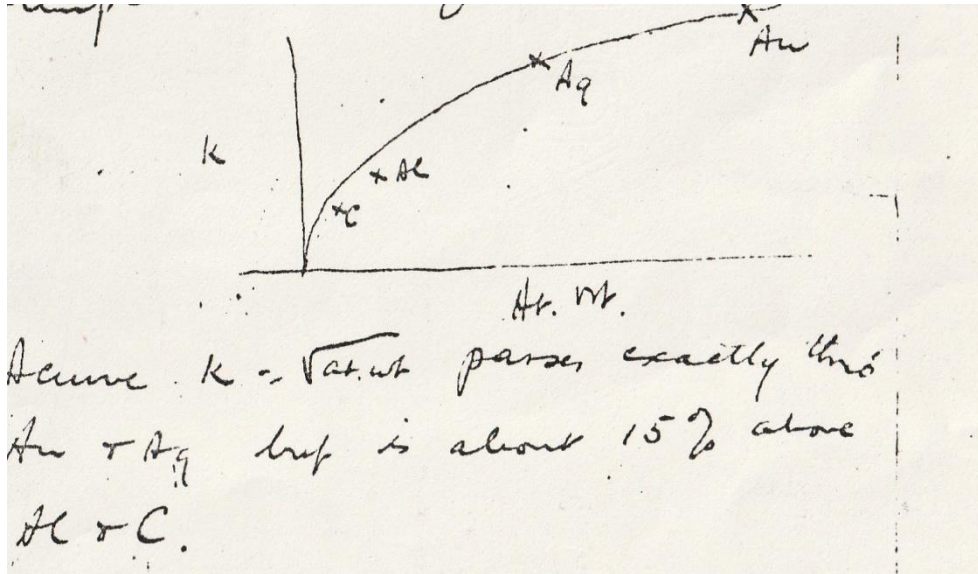 Au
Ag
K
Al
C
At. Wt.
A curve K = √at.wt passes exactly thro'
Au & Ag but is about 15% above
Al & C.